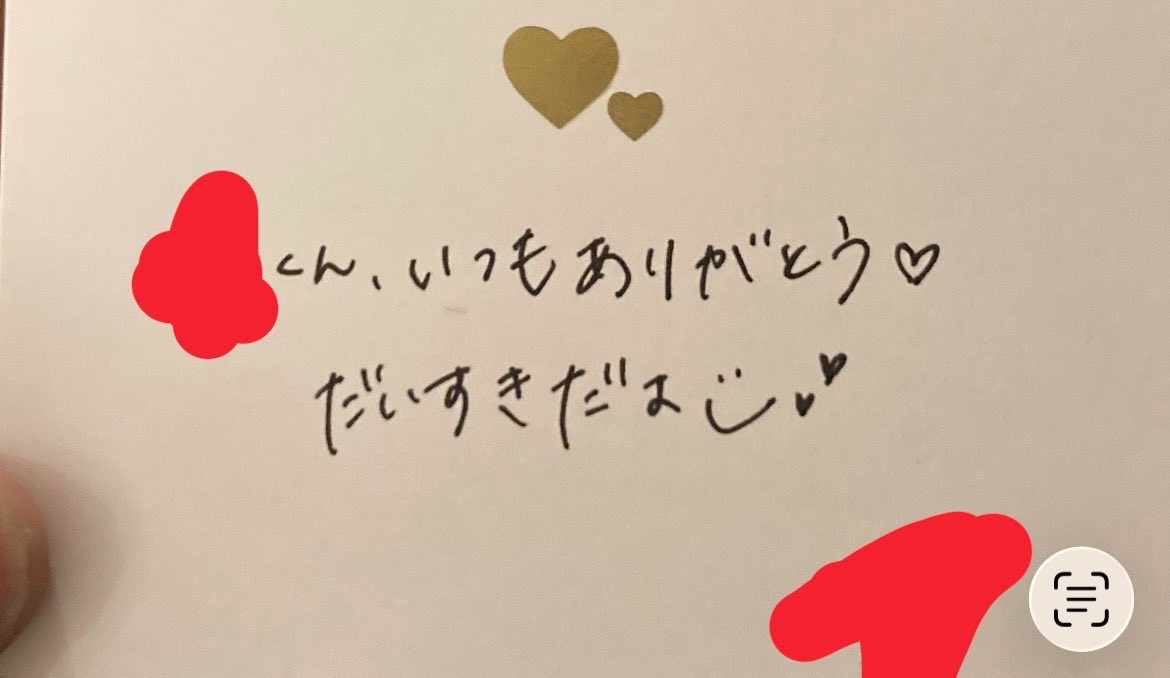 くん、いつもありがとう♡
だいすきだよ